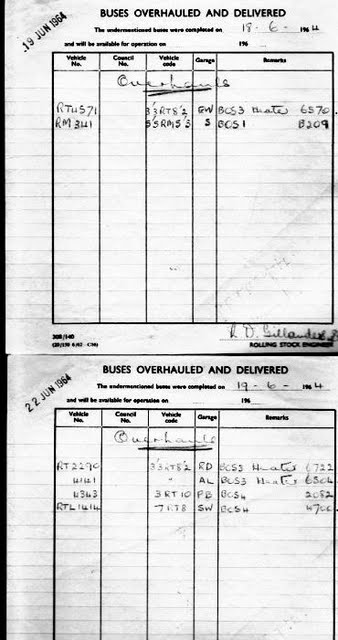 19 JUN 1964
BUSES OVERHAULED AND DELIVERED
The undermentioned buses were completed on 18 - 6 - 1964
and will be available for operation on 196
Vehicle No. Council No. Vehicle code Garage Remarks
Overhauls
RT4571 3/3RT8/2 GW BCS3 Heater 6570
RM341 5/5RM5/3 S BCS1 B209
308/140
ROLLING STOCK ENGINEER
22 JUN 1964
BUSES OVERHAULED AND DELIVERED
The undermentioned buses were completed on 19 - 6 - 1964
and will be available for operation on 196
Vehicle No. Council No. Vehicle code Garage Remarks
Overhauls
RT2290 3/3RT8/2 RD BCS3 Heater 6722
4141 " AL BCS3 Heater 6504
4343 3 RT 10 PB BCS4 2082
RTL1414 7 RT8 SW BCS4 4700